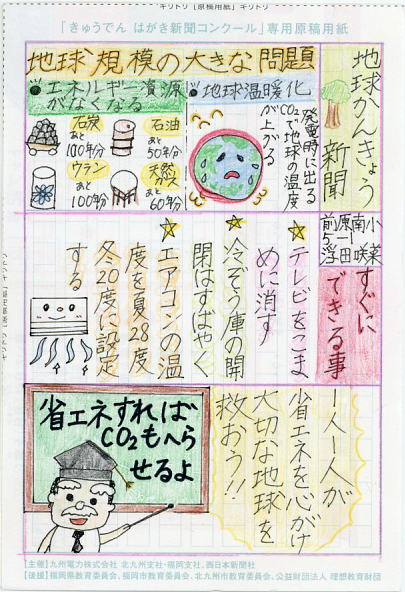 キリトリ【原稿用紙】キリトリ
「きゅうでん はがき新聞コンクール」専用原稿用紙
地球かんきょう
新聞
地球規模の大きな問題
エネルギー資源
がなくなる
石炭
あと
110年分
石油
あと
50年分
ウラン
あと
100年分
天然
ガス
あと
60年分
地球温暖化
発電時に出る
CO2で地球の温度
が上がる
すぐに
できる事
テレビをこま
めに消す
冷ぞう庫の開
閉はすばやく
エアコンの温
度を夏28度
冬20度に設定
する
一人一人が
省エネを心がけ
大切な地球を
救おう!!
省エネすれば
CO2もへら
せるよ
【主催】九州電力株式会社 北九州支社・福岡支社、西日本新聞社
【後援】福岡県教育委員会、福岡市教育委員会、北九州市教育委員会、公益財団法人 理想教育財団